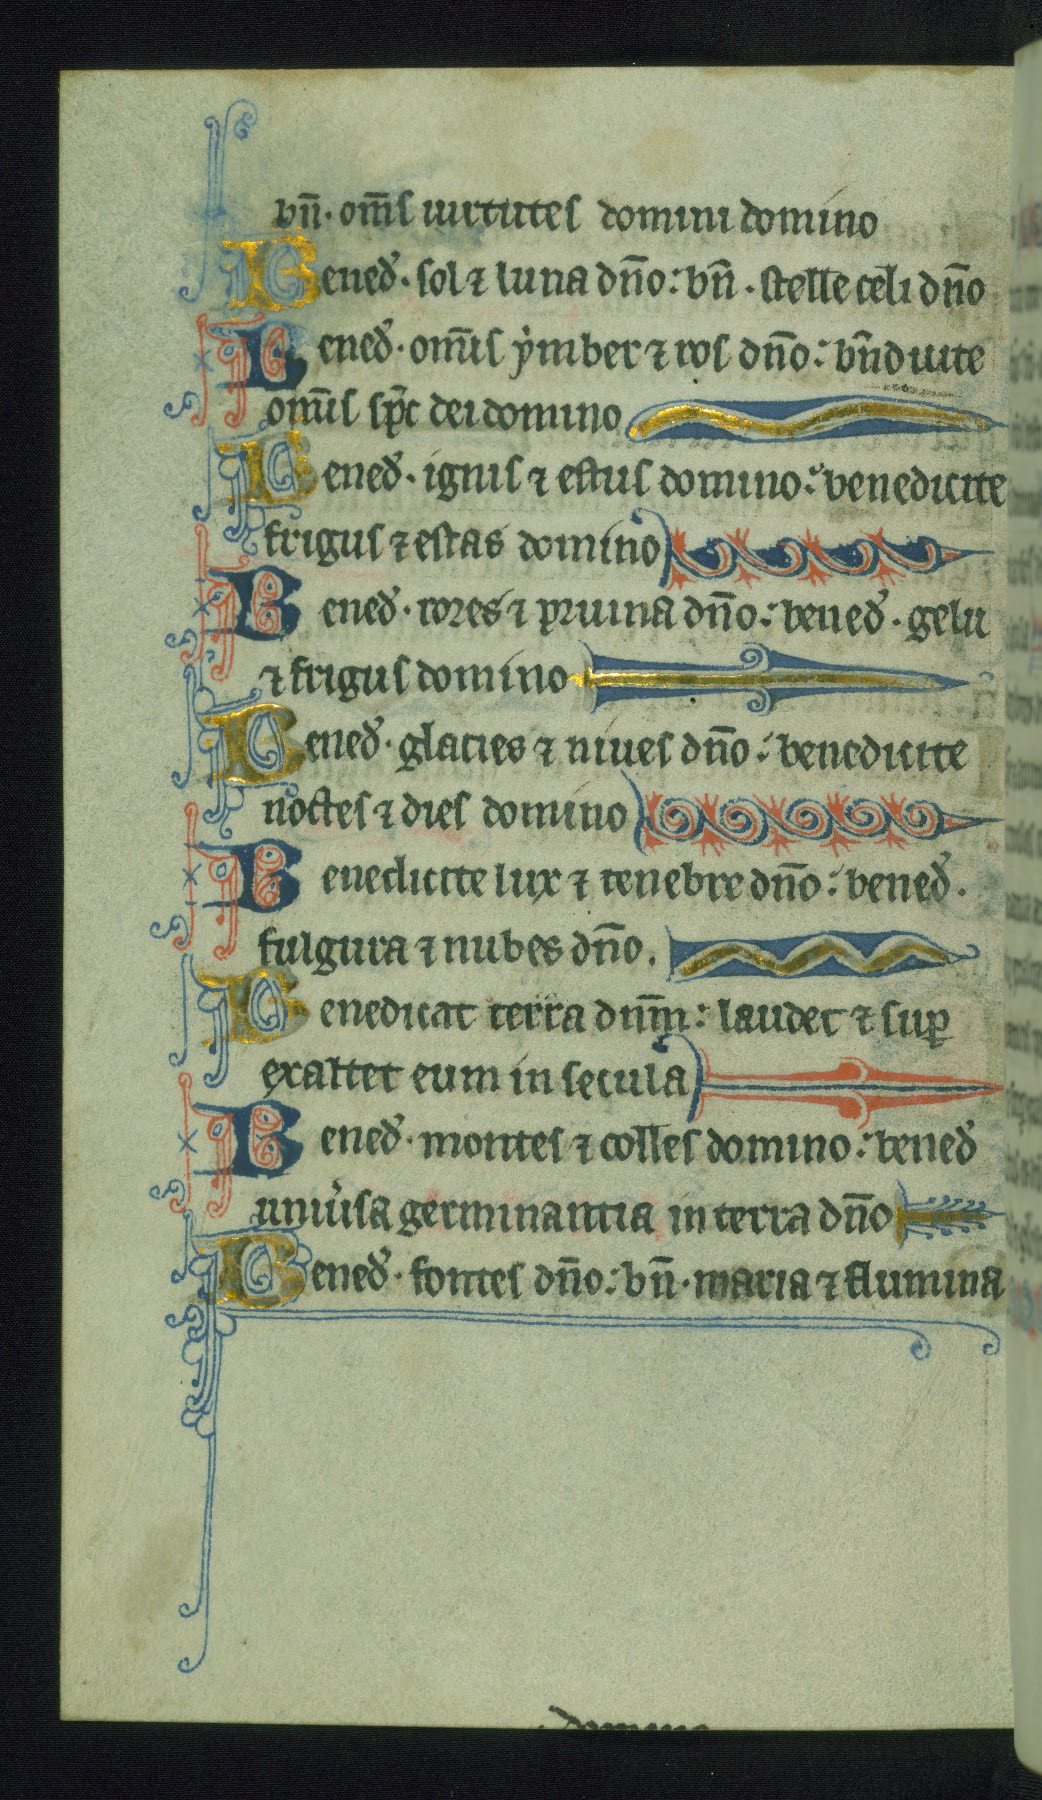 bn̄. om̄s uirtutes domini domino
Bened̉. sol ⁊ luna dn̄o: bn̄. stelle celi dn̄o
Bened̉. om̄is ẏmber ⁊ ros dn̄o: bn̄dicite
om̄is sp̄c dei domino
Bened̉. ignis ⁊ estus domino: benedicite
frigus ⁊ estas domino
Bened̉. rores ⁊ pruina dn̄o: bened̉. gelu
⁊ frigus domino
Bened̉. glacies ⁊ niues dn̄o: benedicite
noctes ⁊ dies domino
Benedicite lux ⁊ tenebre dn̄o: bened̉.
fulgura ⁊ nubes dn̄o.
Benedicat terra dn̄m: laudet ⁊ suꝑ
exaltet eum in secula
Bened̉. montes ⁊ colles domino: bened̉
uniu̓sa germinantia in terra dn̄o
Bened̉. fontes dn̄o: bn̄. maria ⁊ flumina
domino